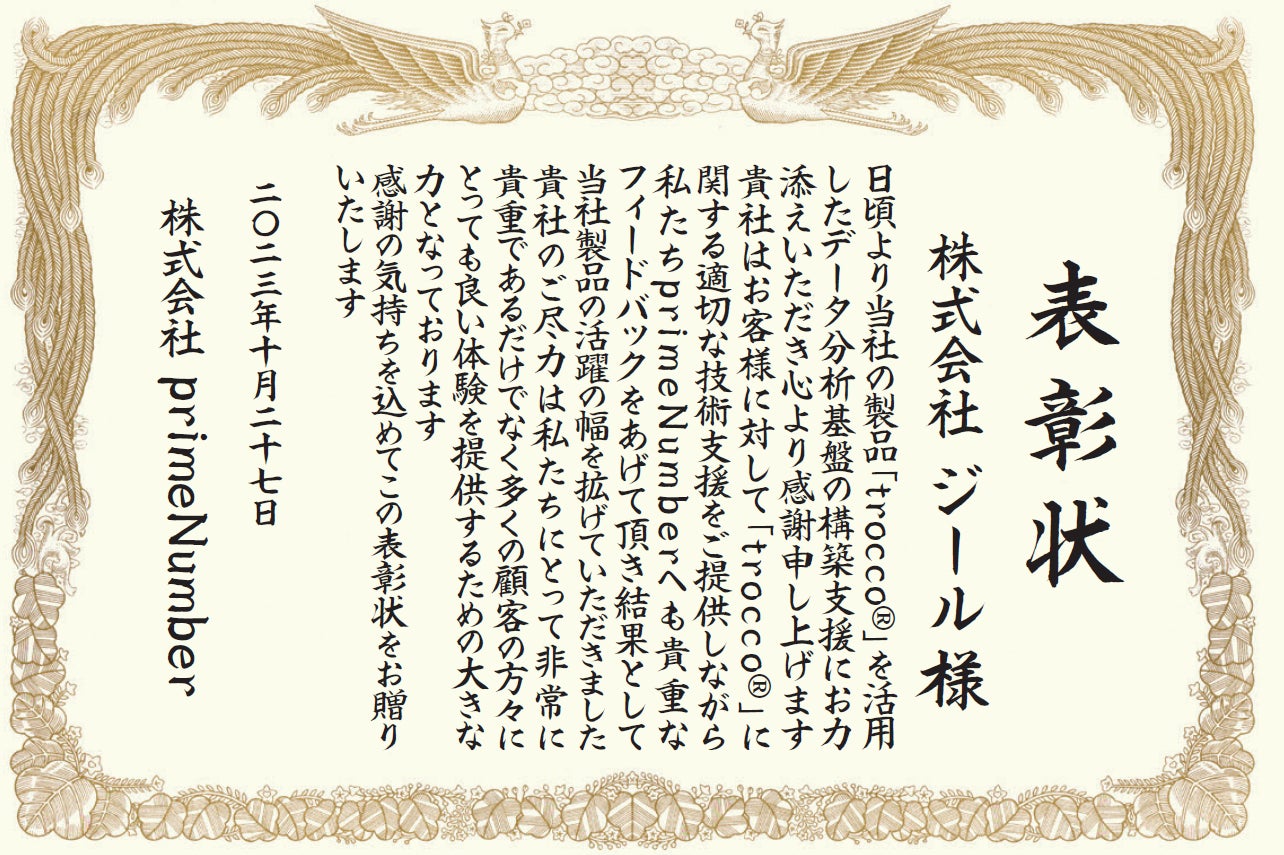 表彰状
株式会社 ジール 様
日頃より当社の製品「trocco®」を活用
したデータ分析基盤の構築支援にお力
添えいただき心より感謝申し上げます
貴社はお客様に対して「trocco®」に
関する適切な技術支援をご提供しながら
私たちprimeNumberへも貴重な
フィードバックをあげて頂き結果として
当社製品の活躍の幅を拡げていただきました
貴社のご尽力は私たちにとって非常に
貴重であるだけでなく多くの顧客の方々に
とっても良い体験を提供するための大きな
力となっております
感謝の気持ちを込めてこの表彰状をお贈り
いたします
二〇二三年十月二十七日
株式会社 primeNumber